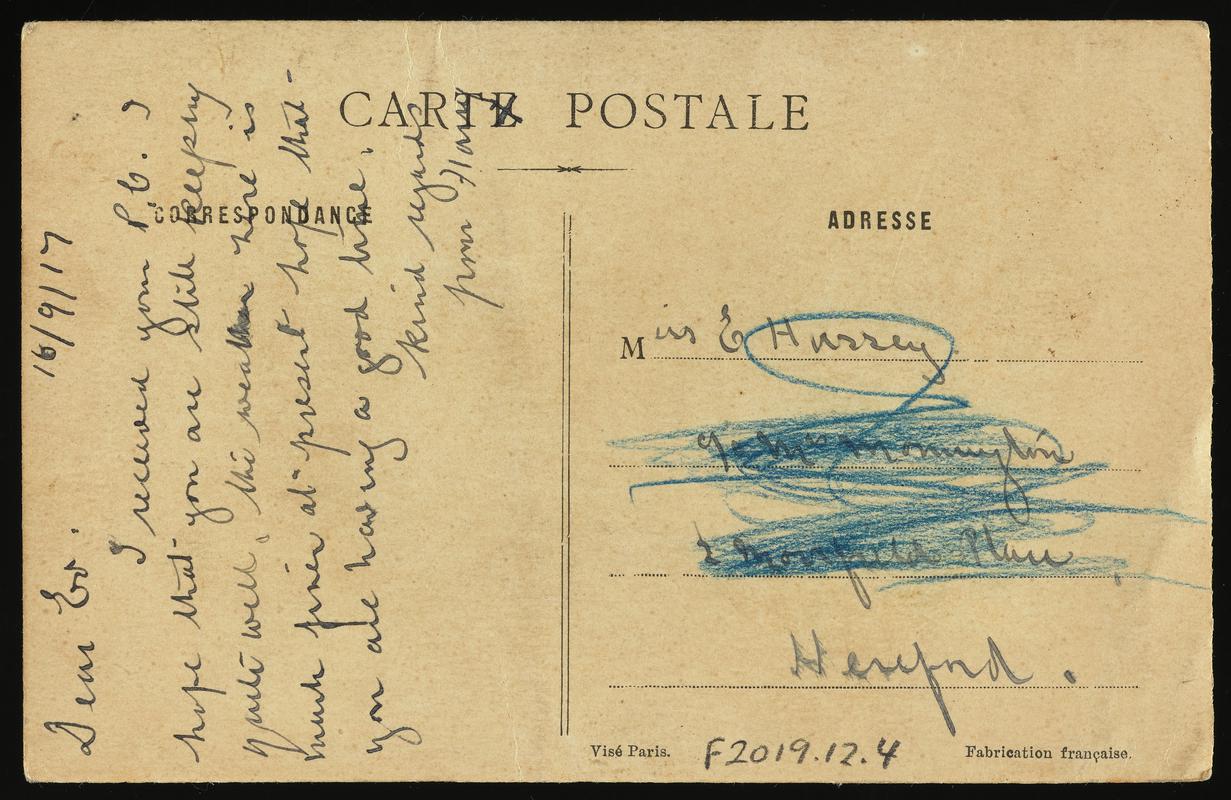 CARTE POSTALE
CORRESPONDANCE
16/9/17
Dear Ev.
I received your P.C. I
hope that you are still keeping
quite well, the weather here is
much finer at present hope that
you are having a good time.
kind regards
from Harry
ADRESSE
Miss E Hussey.
c/o Mrs Monnington
2 Place
Hereford.
Visé Paris.
F2019.12.4
Fabrication française.